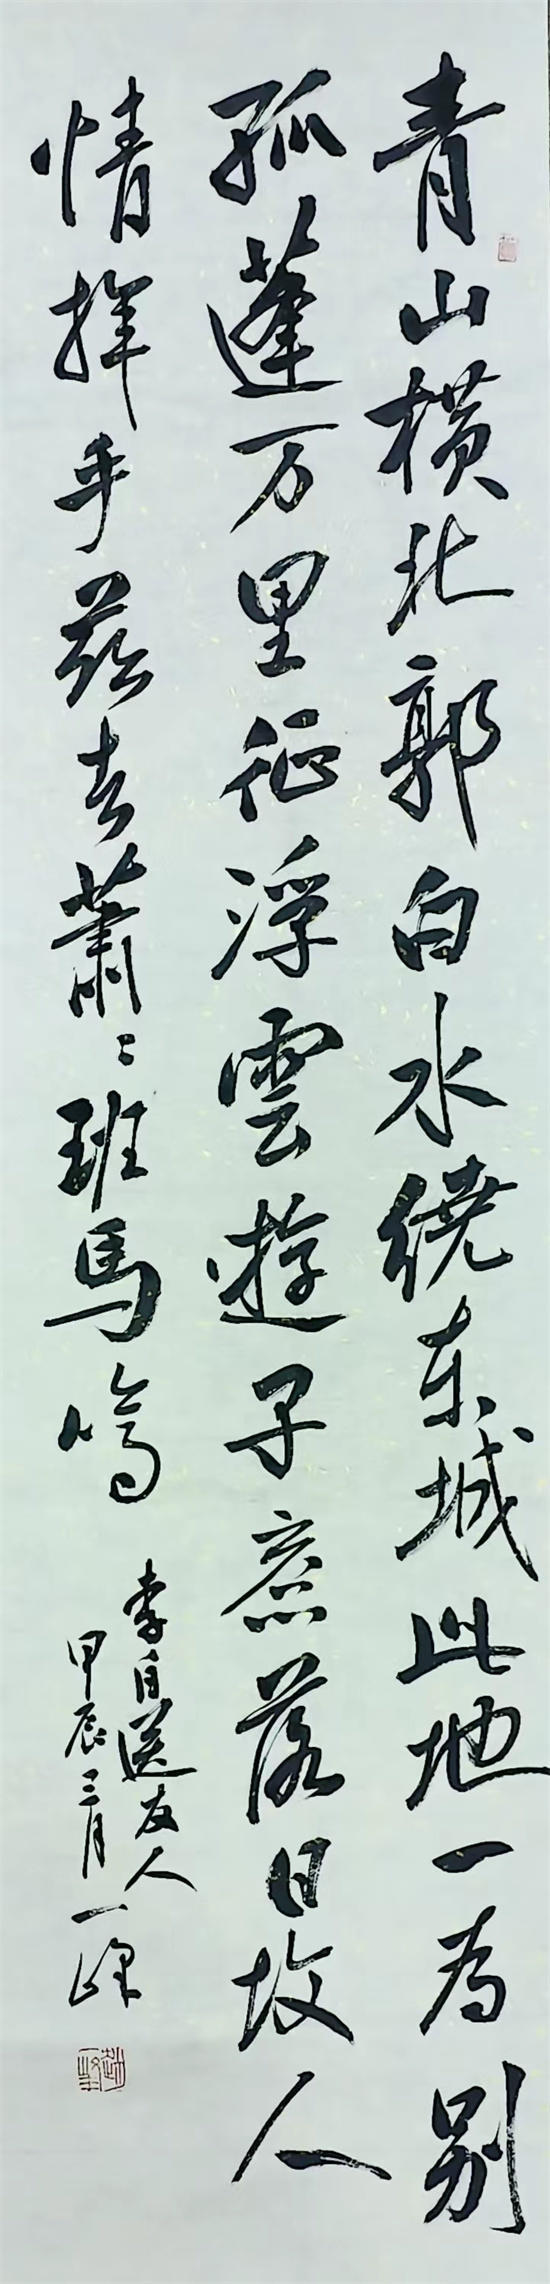 青山橫北郭白水绕东城此地一為别
孤蓬万里征浮雲遊子意落日故人
情挥手兹去蕭〻班馬鸣
李白送友人
甲辰三月一峰